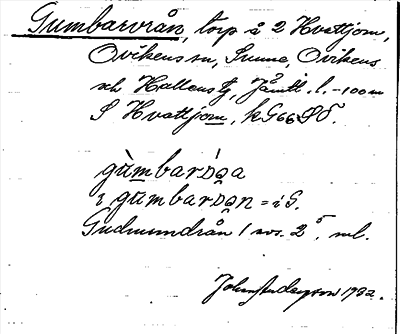 Gumbarvrån, torp å 2 Hvattjom,
Ovikens sn, Sunne, Ovikens
och Hallens tg, Jämtl. l. -100 m
S Hvattjom, k G66SÖ.
gùmbarọ́a
i gùmbarọạn = i S.
Gudmundrån 1 ros. 2 ml.
John Anderson 1932.